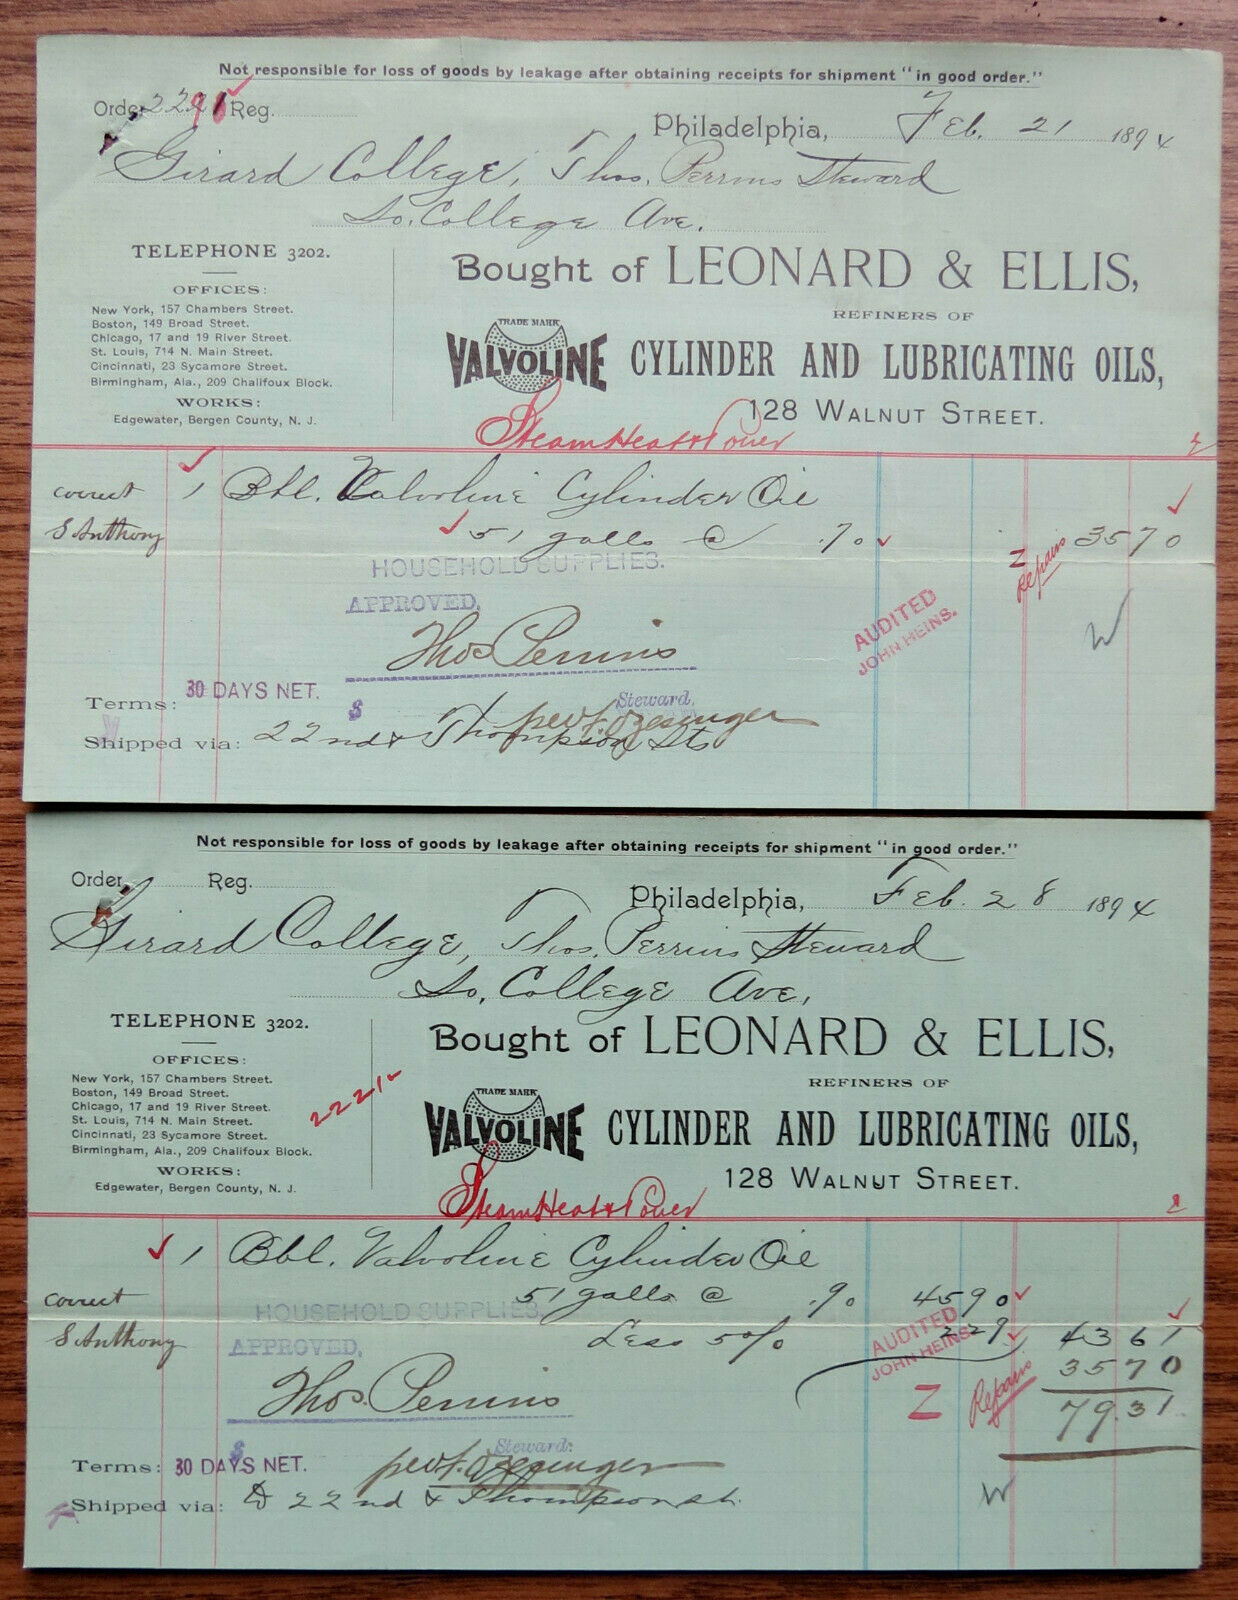 Not responsible for loss of goods by leakage after obtaining receipts for shipment "in good order."
Order 2221 Reg.
Philadelphia, Feb. 21 1894
Girard College, Thos. Perrins Steward
So. College Ave.
TELEPHONE 3202.
OFFICES:
New York, 157 Chambers Street.
Boston, 149 Broad Street.
Chicago, 17 and 19 River Street.
St. Louis, 714 N. Main Street.
Cincinnati, 23 Sycamore Street.
Birmingham, Ala., 209 Chalifoux Block.
WORKS:
Edgewater, Bergen County, N. J.
Bought of LEONARD & ELLIS,
REFINERS OF
TRADE MARK
VALVOLINE
CYLINDER AND LUBRICATING OILS,
128 WALNUT STREET.
Steam Heat & Power
correct 1 Bbl. Valvoline Cylinder Oil
S Anthony 51 galls @ .70 3570
Z Repairs
HOUSEHOLD SUPPLIES.
APPROVED,
AUDITED
JOHN HEINS.
W
Thos Perrins
Steward.
Terms: 30 DAYS NET.
$
per
Shipped via: 22nd & Thompson Sts
Not responsible for loss of goods by leakage after obtaining receipts for shipment "in good order."
Order Reg.
Philadelphia, Feb. 28 1894
Girard College, Thos. Perrins Steward
So. College Ave,
TELEPHONE 3202.
OFFICES:
New York, 157 Chambers Street.
Boston, 149 Broad Street.
Chicago, 17 and 19 River Street.
St. Louis, 714 N. Main Street.
Cincinnati, 23 Sycamore Street.
Birmingham, Ala., 209 Chalifoux Block.
WORKS:
Edgewater, Bergen County, N. J.
2221
Bought of LEONARD & ELLIS,
REFINERS OF
TRADE MARK
VALVOLINE
CYLINDER AND LUBRICATING OILS,
128 WALNUT STREET.
Steam Heat & Power
1 Bbl. Valvoline Cylinder Oil
correct 51 galls @ .90 4590
S Anthony Less 5 o/o 229 4361
3570
79.31
HOUSEHOLD SUPPLIES.
APPROVED,
AUDITED
JOHN HEINS.
Z Repairs
Thos. Perrins
Steward.
$
per
Terms: 30 DAYS NET.
Shipped via: 22nd & Thompson st.
W